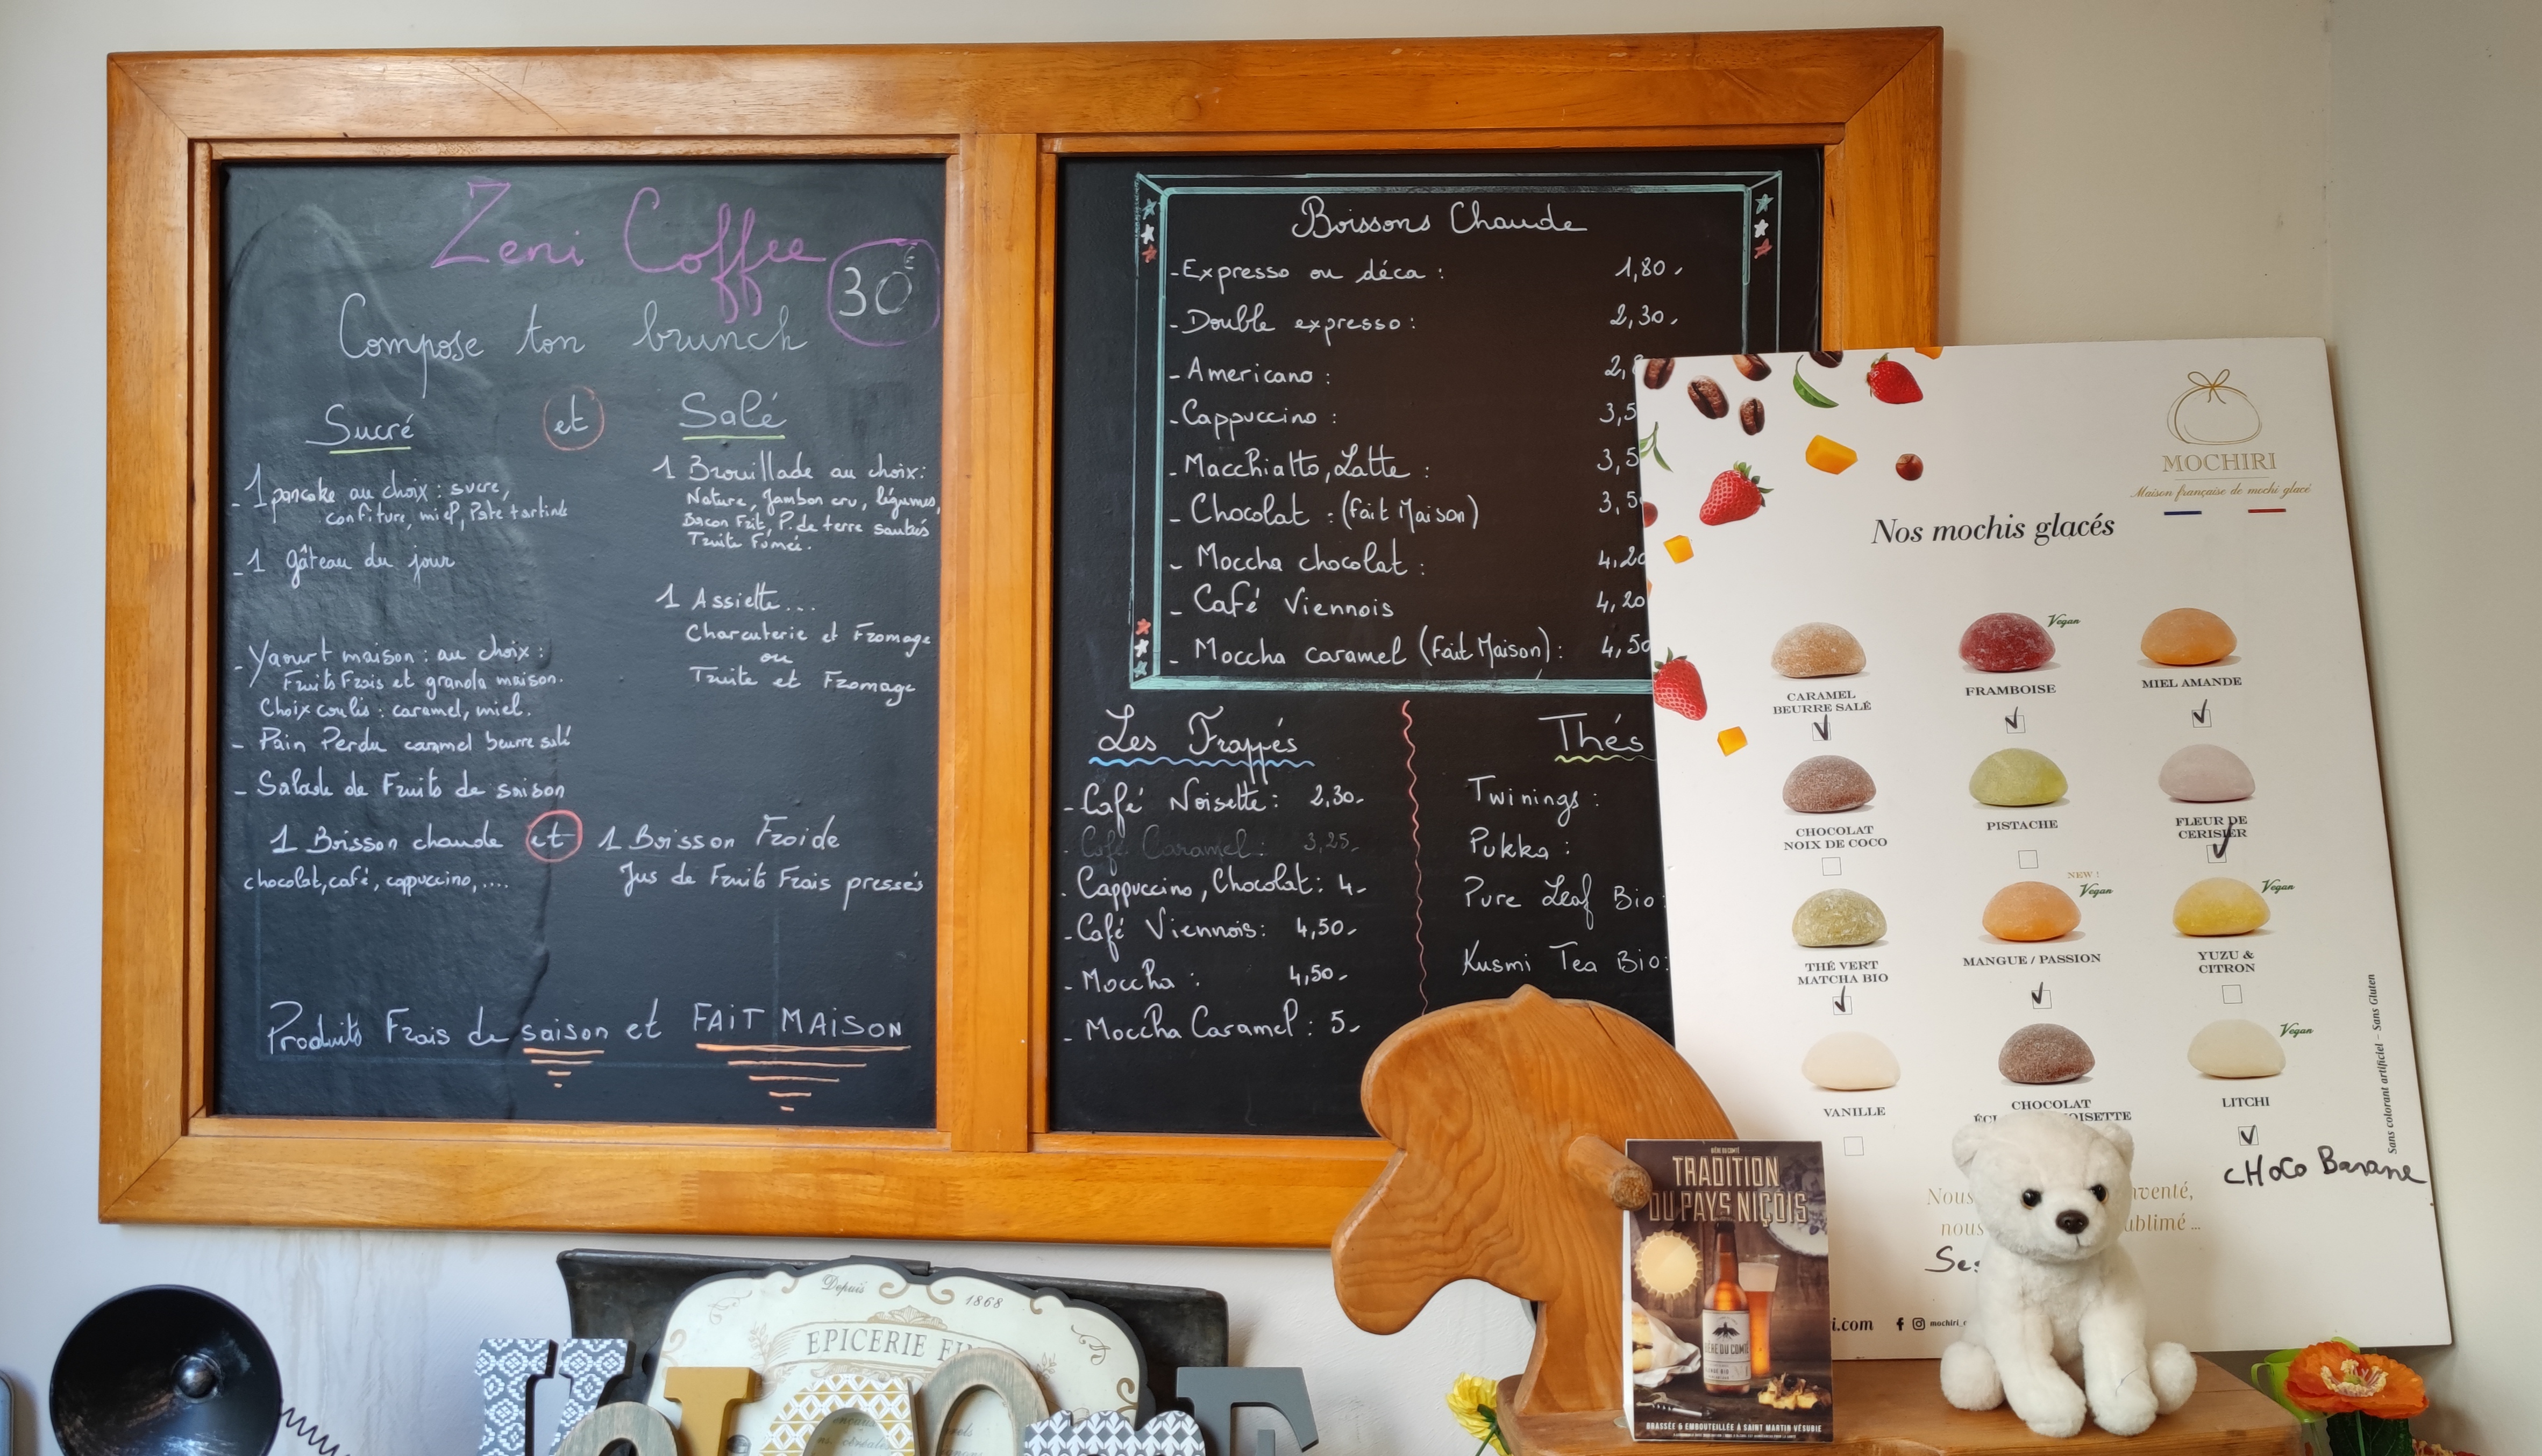 Zeni Coffee
30€
Compose ton brunch
Sucré
et
Salé
- 1 pancake au choix : sucre,
confiture, miel, Pâte tartinde
- 1 gâteau du jour
- Yaourt maison : au choix :
Fruits Frais et granola maison.
Choix coulis : caramel, miel.
- Pain Perdu caramel beurre salé
- Salade de Fruits de saison
1 Brouillade au choix :
Nature, Jambon cru, légumes,
Bacon Frit, P. de terre sautés
Truite Fumée.
1 Assiette...
Charcuterie et Fromage
ou
Truite et Fromage
1 Boisson chaude et 1 Boisson Froide
chocolat, café, cappuccino, ....
Jus de Fruits Frais pressés
Produits Frais de saison et FAIT MAISON
Boissons Chaude
- Expresso ou déca : 1,80,
- Double expresso : 2,30,
- Americano : 2,
- Cappuccino : 3,5
- Macchiatto, Latte : 3,5
- Chocolat : (Fait Maison) 3,5
- Moccha chocolat : 4,20
- Café Viennois 4,20
- Moccha caramel (Fait Maison) : 4,50
Les Frappés
- Café Noisette : 2,30-
- Café Caramel : 3,25-
- Cappuccino, Chocolat : 4-
- Café Viennois : 4,50-
- Moccha : 4,50-
- Moccha Caramel : 5-
Thés
Twinings :
Pukka :
Pure Leaf Bio :
Kusmi Tea Bio :
MOCHIRI
Maison française de mochi glacé
Nos mochis glacés
CARAMEL
BEURRE SALÉ
Vegan
FRAMBOISE
MIEL AMANDE
CHOCOLAT
NOIX DE COCO
PISTACHE
FLEUR DE
CERISIER
THÉ VERT
MATCHA BIO
NEW !
Vegan
MANGUE / PASSION
Vegan
YUZU &
CITRON
VANILLE
CHOCOLAT
Vegan
LITCHI
Sans colorant artificiel – Sans Gluten
CHOCO Banane
Nous
nous
.com
BIÈRE DU COMTÉ
TRADITION
DU PAYS NIÇOIS
BIÈRE DU COMTÉ
BRASSÉE & EMBOUTEILLÉE À SAINT MARTIN VÉSUBIE
Depuis 1868
EPICERIE